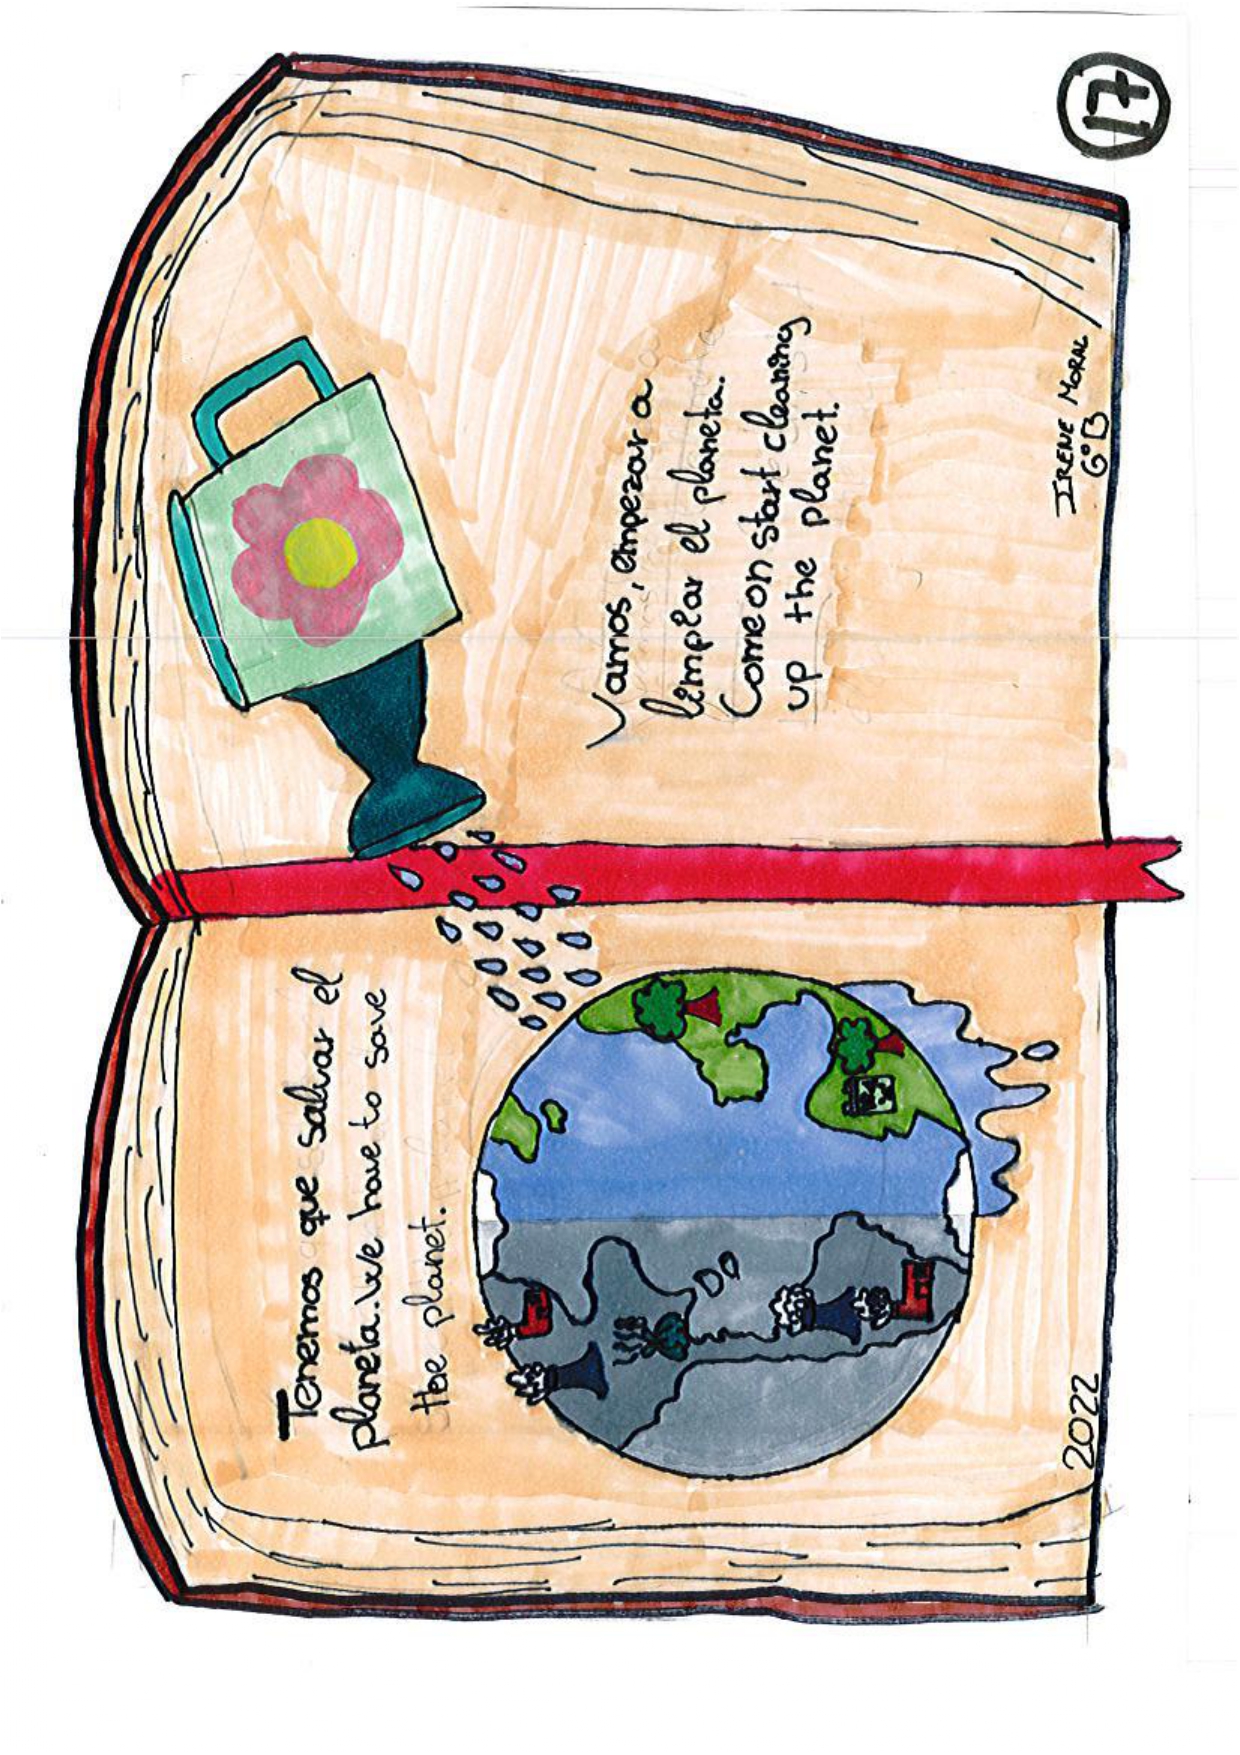 17
Tenemos que salvar el
planeta. We have to save
the planet.
2022
Vamos, empezar a
limpiar el planeta.
Come on start cleaning
up the planet.
IRENE MORAL
6º B